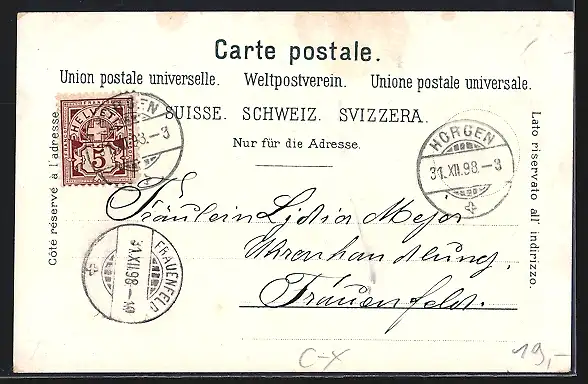 Carte postale.
Union postale universelle. Weltpostverein. Unione postale universale.
SUISSE. SCHWEIZ. SVIZZERA.
Nur für die Adresse.
Côté réservé à l'adresse.
Lato riservato all' indirizzo.
HELVETIA
5
HORGEN
31.XII.98.-3
Fräulein Lydia Meyer
Uhrenhandlung,
Frauenfeld.
FRAUENFELD
31.XII.98-10
C-X
19,-